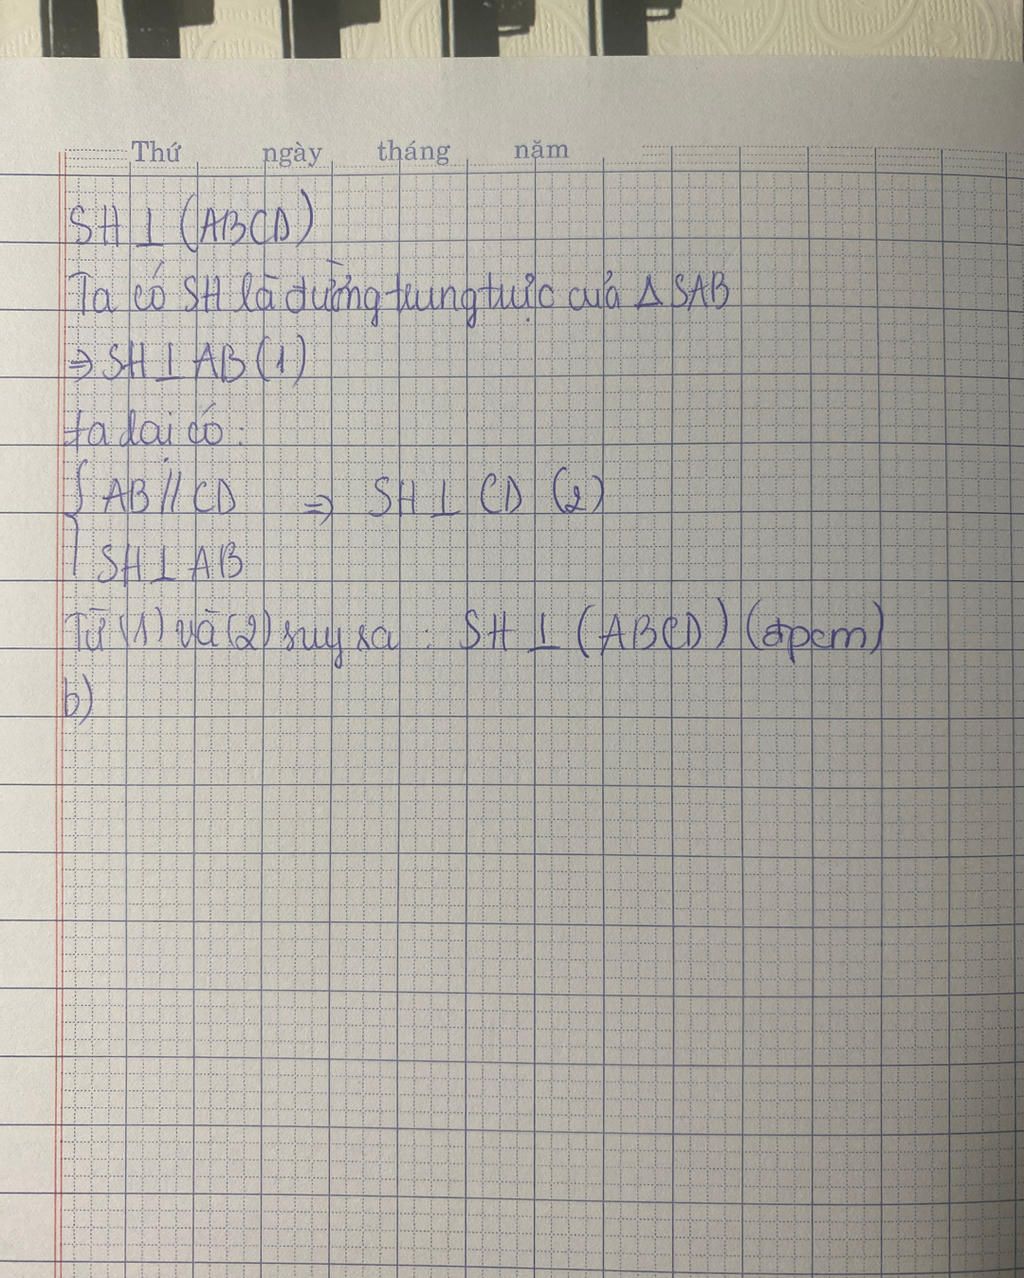 Thứ ngày tháng năm
SH ⊥ (ABCD)
Ta có SH là đường trung trực của Δ SAB
⇒ SH ⊥ AB (1)
ta lại có :
{ AB // CD ⇒ SH ⊥ CD (2)
SH ⊥ AB
Từ (1) và (2) suy ra : SH ⊥ (ABCD) (đpcm)
b)